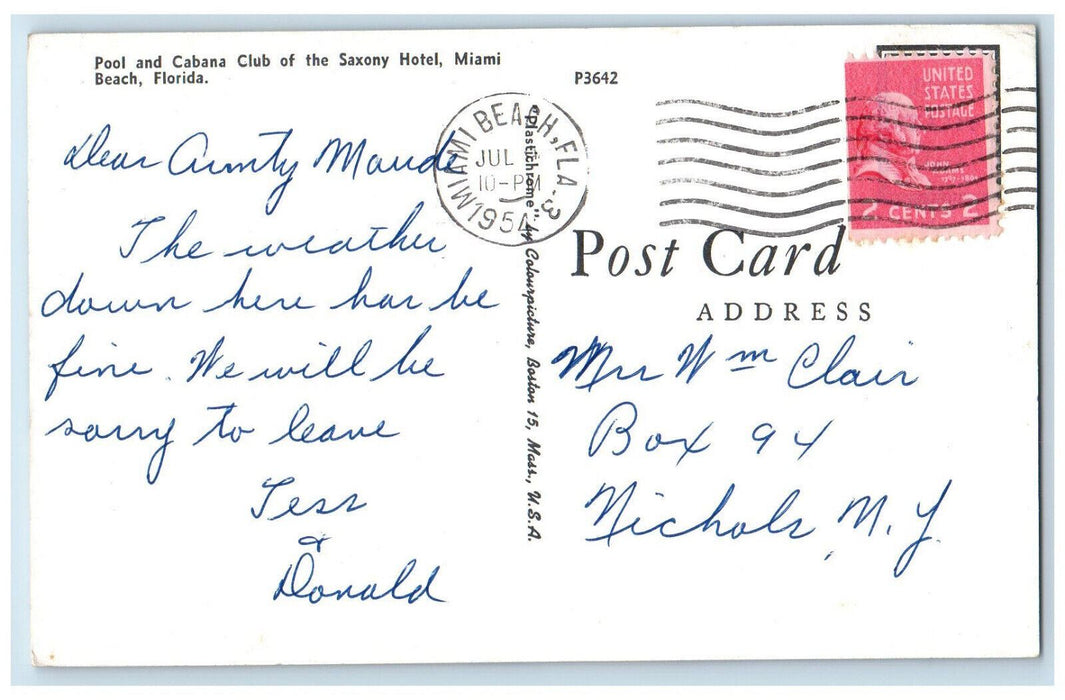 Pool and Cabana Club of the Saxony Hotel, Miami
Beach, Florida.
P3642
MIAMI BEACH, FLA. 3
JUL
10-PM
1954
UNITED
STATES
POSTAGE
JOHN
2 CENTS 2
"Plastichrome" by Colourpicture, Boston 15, Mass., U.S.A.
Post Card
ADDRESS
Dear Aunty Maude
The weather
down here has be
fine. We will be
sorry to leave
Tess
&
Donald
Mrs Wm Clair
Box 94
Nichols, N.Y.